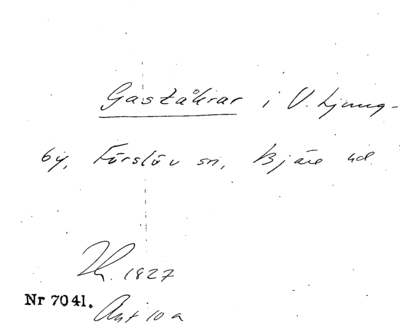 Gaståkrar i V. Ljung-
by, Förslöv sn, Bjäre hd
1827
Nr 7041.
Akt 10 a